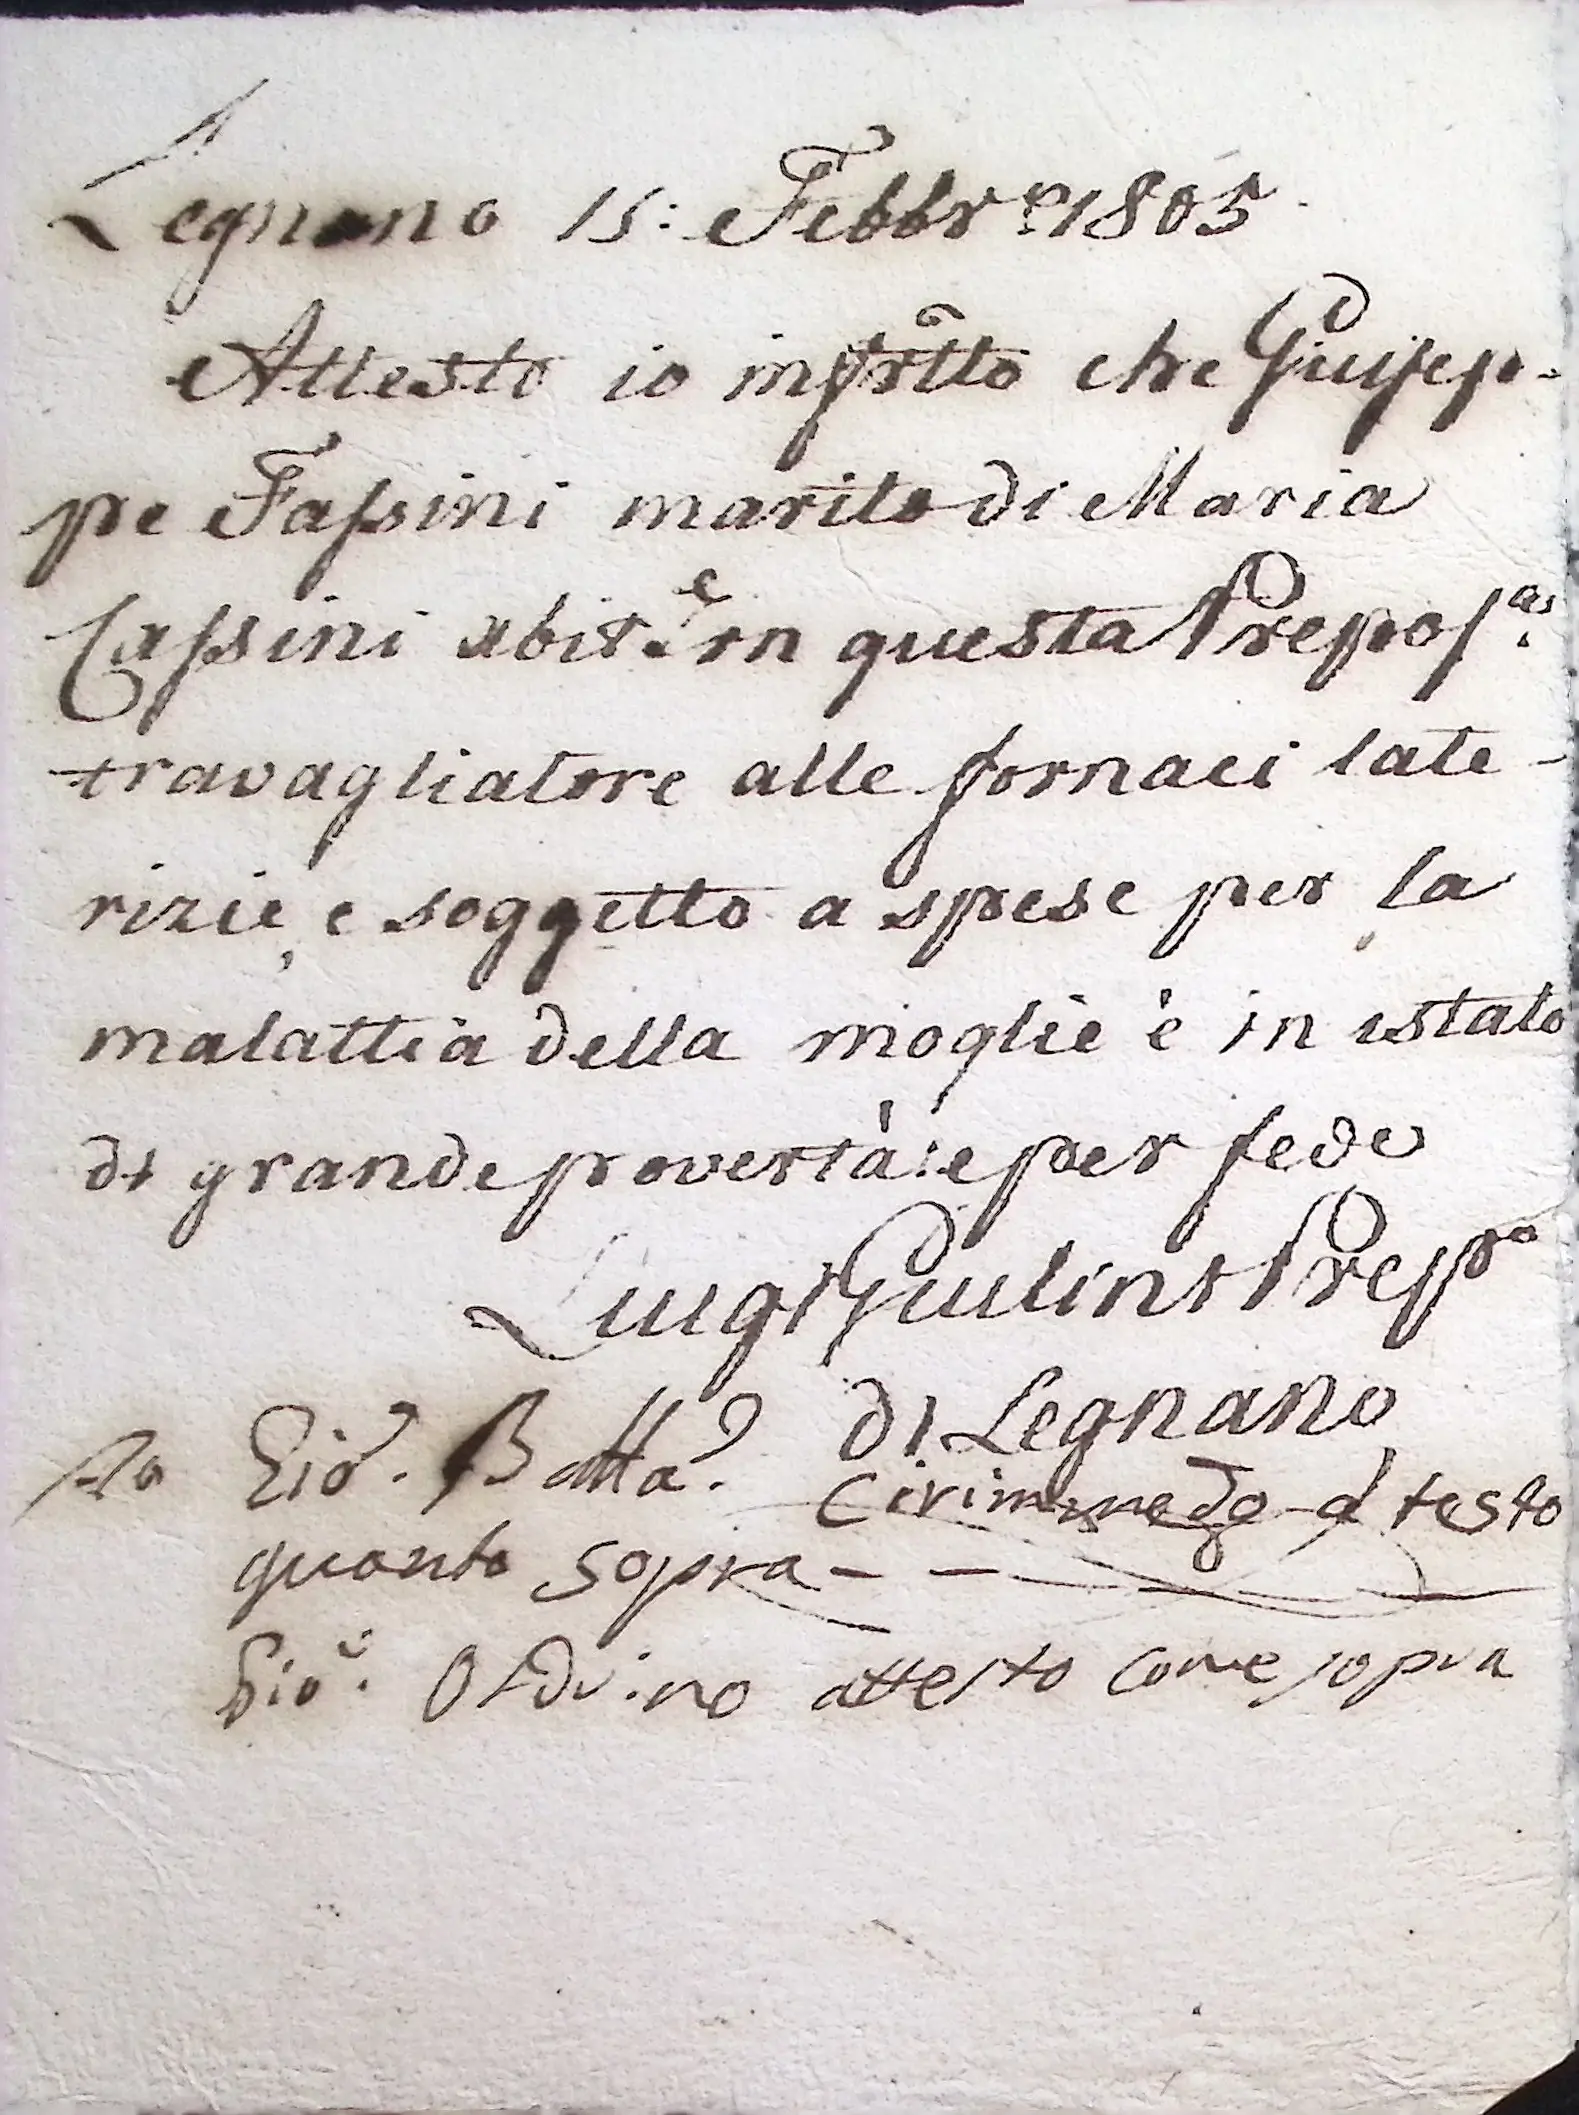 Legnano 15: Febbr.e 1805
Attesto io infrãtto che Giusep-
pe Fassini marito di Maria
Cassini abit.e in questa Prepos.a
travagliatore alle fornaci late-
rizie, e soggetto a spese per la
malattia della moglie è in istato
di grande povertà: e per fede
Luigi Giulini Prepo
di Legnano
Gio. Batta. attesto
quanto sopra - -
Gio. attesto come sopra